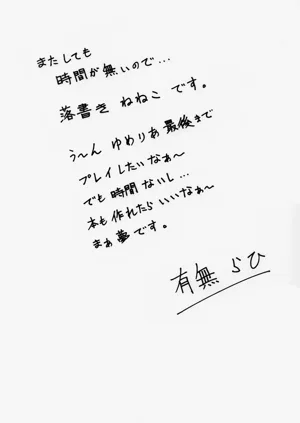 またしても
時間が無いので…
落書き ねねこ です。
う〜ん ゆめりあ最後まで
プレイしたいなぁ〜
でも時間ないし…
本も作れたらいいなぁ〜
まぁ夢です。
有無 らひ